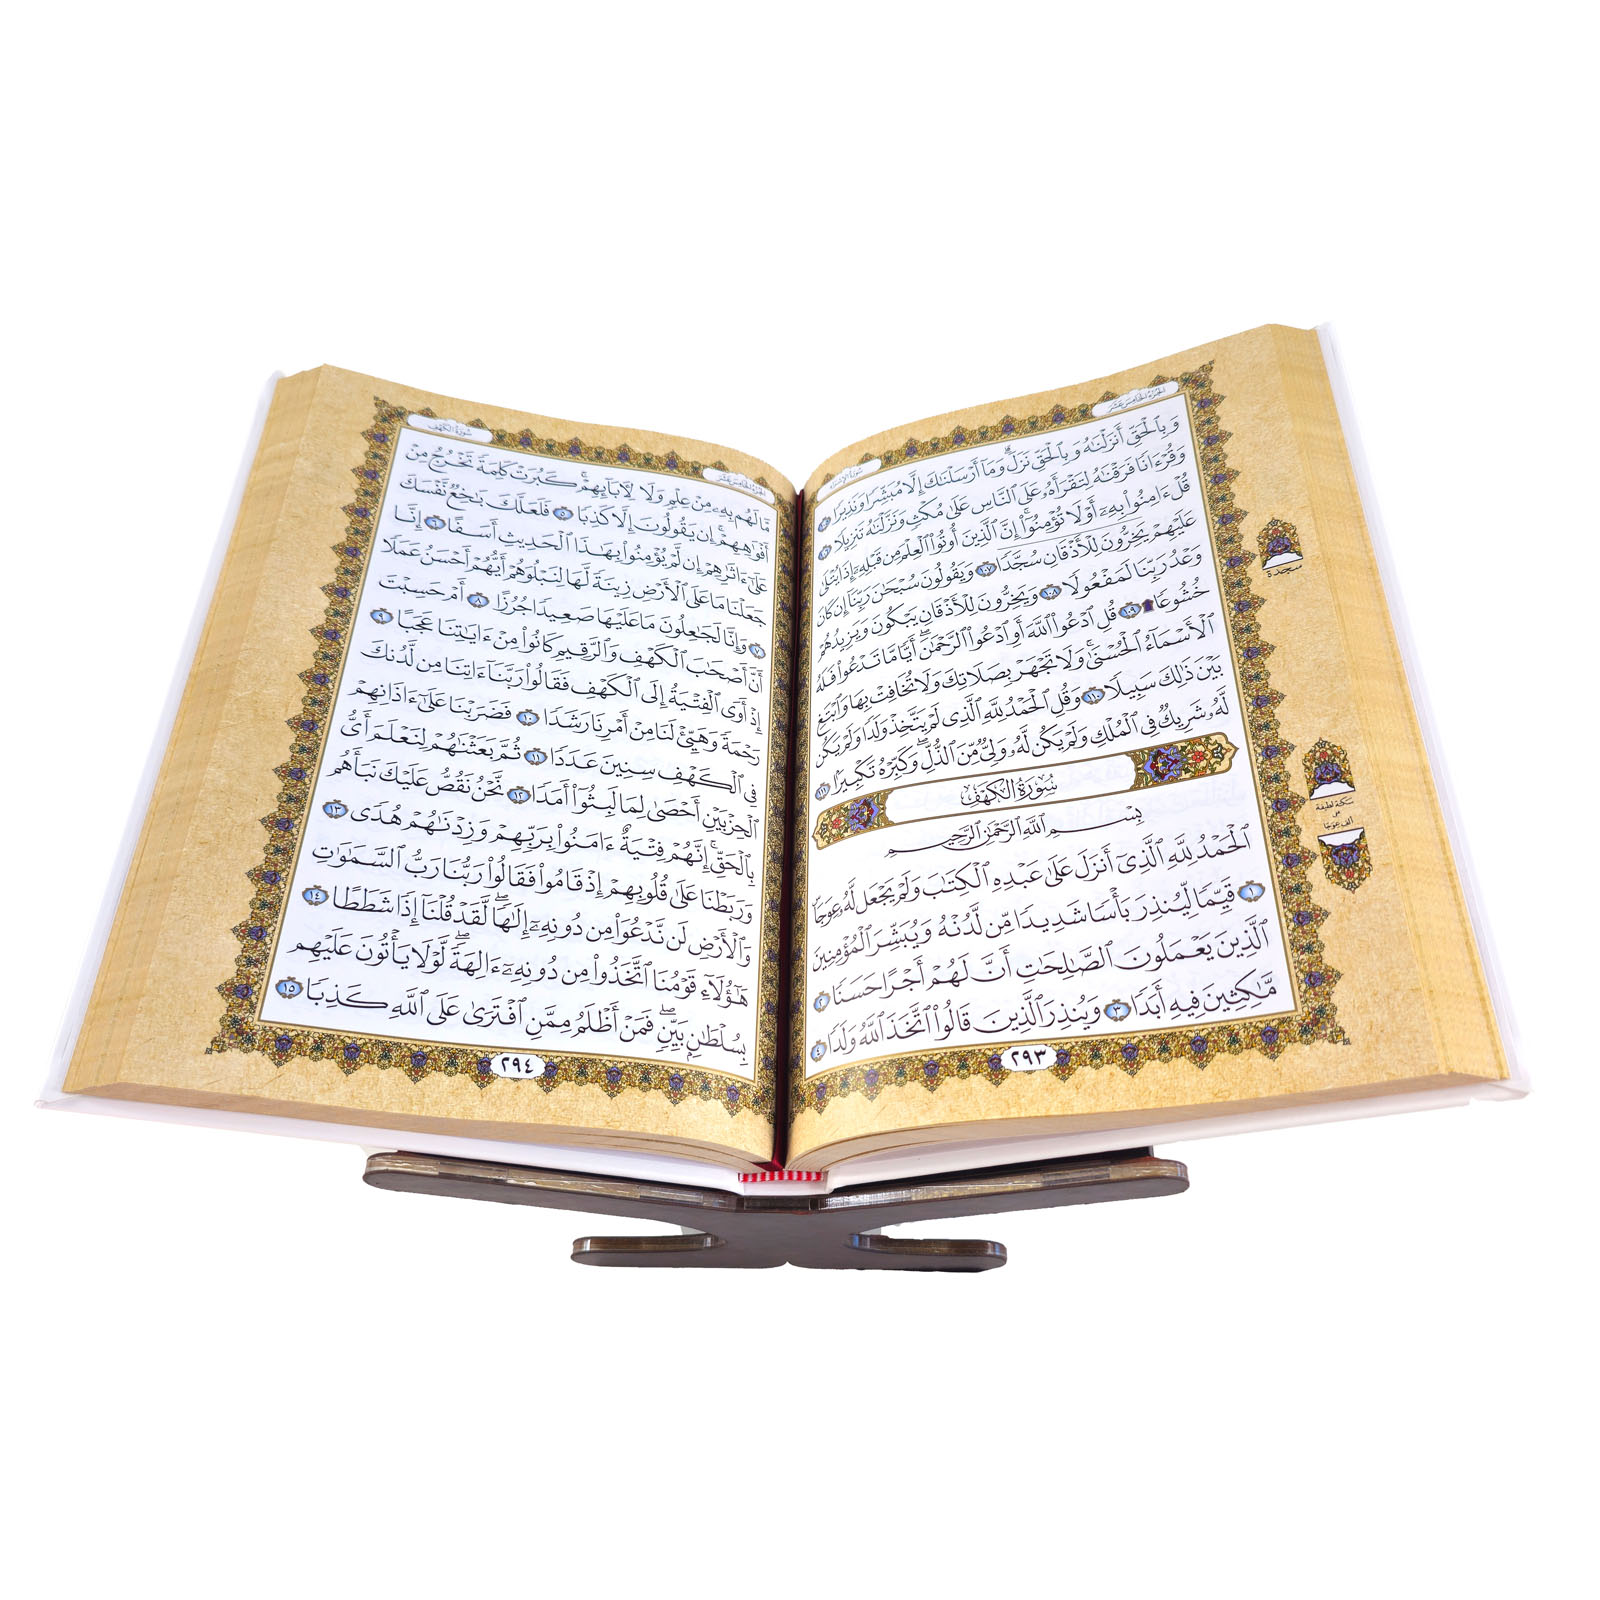 الجزء الخامس عشر
سورة الإسراء
وَبِٱلْحَقِّ أَنزَلْنَٰهُ وَبِٱلْحَقِّ نَزَلَ ۗ وَمَآ أَرْسَلْنَٰكَ إِلَّا مُبَشِّرًا وَنَذِيرًا ١٠٥
وَقُرْءَانًا فَرَقْنَٰهُ لِتَقْرَأَهُۥ عَلَى ٱلنَّاسِ عَلَىٰ مُكْثٍ وَنَزَّلْنَٰهُ تَنزِيلًا ١٠٦
قُلْ ءَامِنُوا۟ بِهِۦٓ أَوْ لَا تُؤْمِنُوٓا۟ ۚ إِنَّ ٱلَّذِينَ أُوتُوا۟ ٱلْعِلْمَ مِن قَبْلِهِۦٓ إِذَا يُتْلَىٰ
عَلَيْهِمْ يَخِرُّونَ لِلْأَذْقَانِ سُجَّدًا ١٠٧ وَيَقُولُونَ سُبْحَٰنَ رَبِّنَآ إِن كَانَ
وَعْدُ رَبِّنَا لَمَفْعُولًا ١٠٨ وَيَخِرُّونَ لِلْأَذْقَانِ يَبْكُونَ وَيَزِيدُهُمْ
خُشُوعًا ۩ ١٠٩ قُلِ ٱدْعُوا۟ ٱللَّهَ أَوِ ٱدْعُوا۟ ٱلرَّحْمَٰنَ ۖ أَيًّا مَّا تَدْعُوا۟ فَلَهُ
ٱلْأَسْمَآءُ ٱلْحُسْنَىٰ ۚ وَلَا تَجْهَرْ بِصَلَاتِكَ وَلَا تُخَافِتْ بِهَا وَٱبْتَغِ
بَيْنَ ذَٰلِكَ سَبِيلًا ١١٠ وَقُلِ ٱلْحَمْدُ لِلَّهِ ٱلَّذِى لَمْ يَتَّخِذْ وَلَدًا وَلَمْ يَكُن
لَّهُۥ شَرِيكٌ فِى ٱلْمُلْكِ وَلَمْ يَكُن لَّهُۥ وَلِىٌّ مِّنَ ٱلذُّلِّ ۖ وَكَبِّرْهُ تَكْبِيرًۢا ١١١
سُورَةُ الكَهْفِ
بِسْمِ ٱللَّهِ ٱلرَّحْمَٰنِ ٱلرَّحِيمِ
ٱلْحَمْدُ لِلَّهِ ٱلَّذِىٓ أَنزَلَ عَلَىٰ عَبْدِهِ ٱلْكِتَٰبَ وَلَمْ يَجْعَل لَّهُۥ عِوَجَاۜ
١ قَيِّمًا لِّيُنذِرَ بَأْسًا شَدِيدًا مِّن لَّدُنْهُ وَيُبَشِّرَ ٱلْمُؤْمِنِينَ
ٱلَّذِينَ يَعْمَلُونَ ٱلصَّٰلِحَٰتِ أَنَّ لَهُمْ أَجْرًا حَسَنًا ٢
مَّٰكِثِينَ فِيهِ أَبَدًا ٣ وَيُنذِرَ ٱلَّذِينَ قَالُوا۟ ٱتَّخَذَ ٱللَّهُ وَلَدًا ٤
٢٩٣
سجدة
سكتة لطيفة
على
ألف عوجا
الجزء الخامس عشر
سورة الكهف
مَّا لَهُم بِهِۦ مِنْ عِلْمٍ وَلَا لِءَابَآئِهِمْ ۚ كَبُرَتْ كَلِمَةً تَخْرُجُ مِنْ
أَفْوَٰهِهِمْ ۚ إِن يَقُولُونَ إِلَّا كَذِبًا ٥ فَلَعَلَّكَ بَٰخِعٌ نَّفْسَكَ
عَلَىٰٓ ءَاثَٰرِهِمْ إِن لَّمْ يُؤْمِنُوا۟ بِهَٰذَا ٱلْحَدِيثِ أَسَفًا ٦ إِنَّا
جَعَلْنَا مَا عَلَى ٱلْأَرْضِ زِينَةً لَّهَا لِنَبْلُوَهُمْ أَيُّهُمْ أَحْسَنُ عَمَلًا
٧ وَإِنَّا لَجَٰعِلُونَ مَا عَلَيْهَا صَعِيدًا جُرُزًا ٨ أَمْ حَسِبْتَ
أَنَّ أَصْحَٰبَ ٱلْكَهْفِ وَٱلرَّقِيمِ كَانُوا۟ مِنْ ءَايَٰتِنَا عَجَبًا ٩
إِذْ أَوَى ٱلْفِتْيَةُ إِلَى ٱلْكَهْفِ فَقَالُوا۟ رَبَّنَآ ءَاتِنَا مِن لَّدُنكَ
رَحْمَةً وَهَيِّئْ لَنَا مِنْ أَمْرِنَا رَشَدًا ١٠ فَضَرَبْنَا عَلَىٰٓ ءَاذَانِهِمْ
فِى ٱلْكَهْفِ سِنِينَ عَدَدًا ١١ ثُمَّ بَعَثْنَٰهُمْ لِنَعْلَمَ أَىُّ
ٱلْحِزْبَيْنِ أَحْصَىٰ لِمَا لَبِثُوٓا۟ أَمَدًا ١٢ نَّحْنُ نَقُصُّ عَلَيْكَ نَبَأَهُم
بِٱلْحَقِّ ۚ إِنَّهُمْ فِتْيَةٌ ءَامَنُوا۟ بِرَبِّهِمْ وَزِدْنَٰهُمْ هُدًى ١٣
وَرَبَطْنَا عَلَىٰ قُلُوبِهِمْ إِذْ قَامُوا۟ فَقَالُوا۟ رَبُّنَا رَبُّ ٱلسَّمَٰوَٰتِ
وَٱلْأَرْضِ لَن نَّدْعُوَا۟ مِن دُونِهِۦٓ إِلَٰهًا ۖ لَّقَدْ قُلْنَآ إِذًا شَطَطًا ١٤
هَٰٓؤُلَآءِ قَوْمُنَا ٱتَّخَذُوا۟ مِن دُونِهِۦٓ ءَالِهَةً ۖ لَّوْلَا يَأْتُونَ عَلَيْهِم
بِسُلْطَٰنٍۭ بَيِّنٍ ۖ فَمَنْ أَظْلَمُ مِمَّنِ ٱفْتَرَىٰ عَلَى ٱللَّهِ كَذِبًا ١٥
٢٩٤